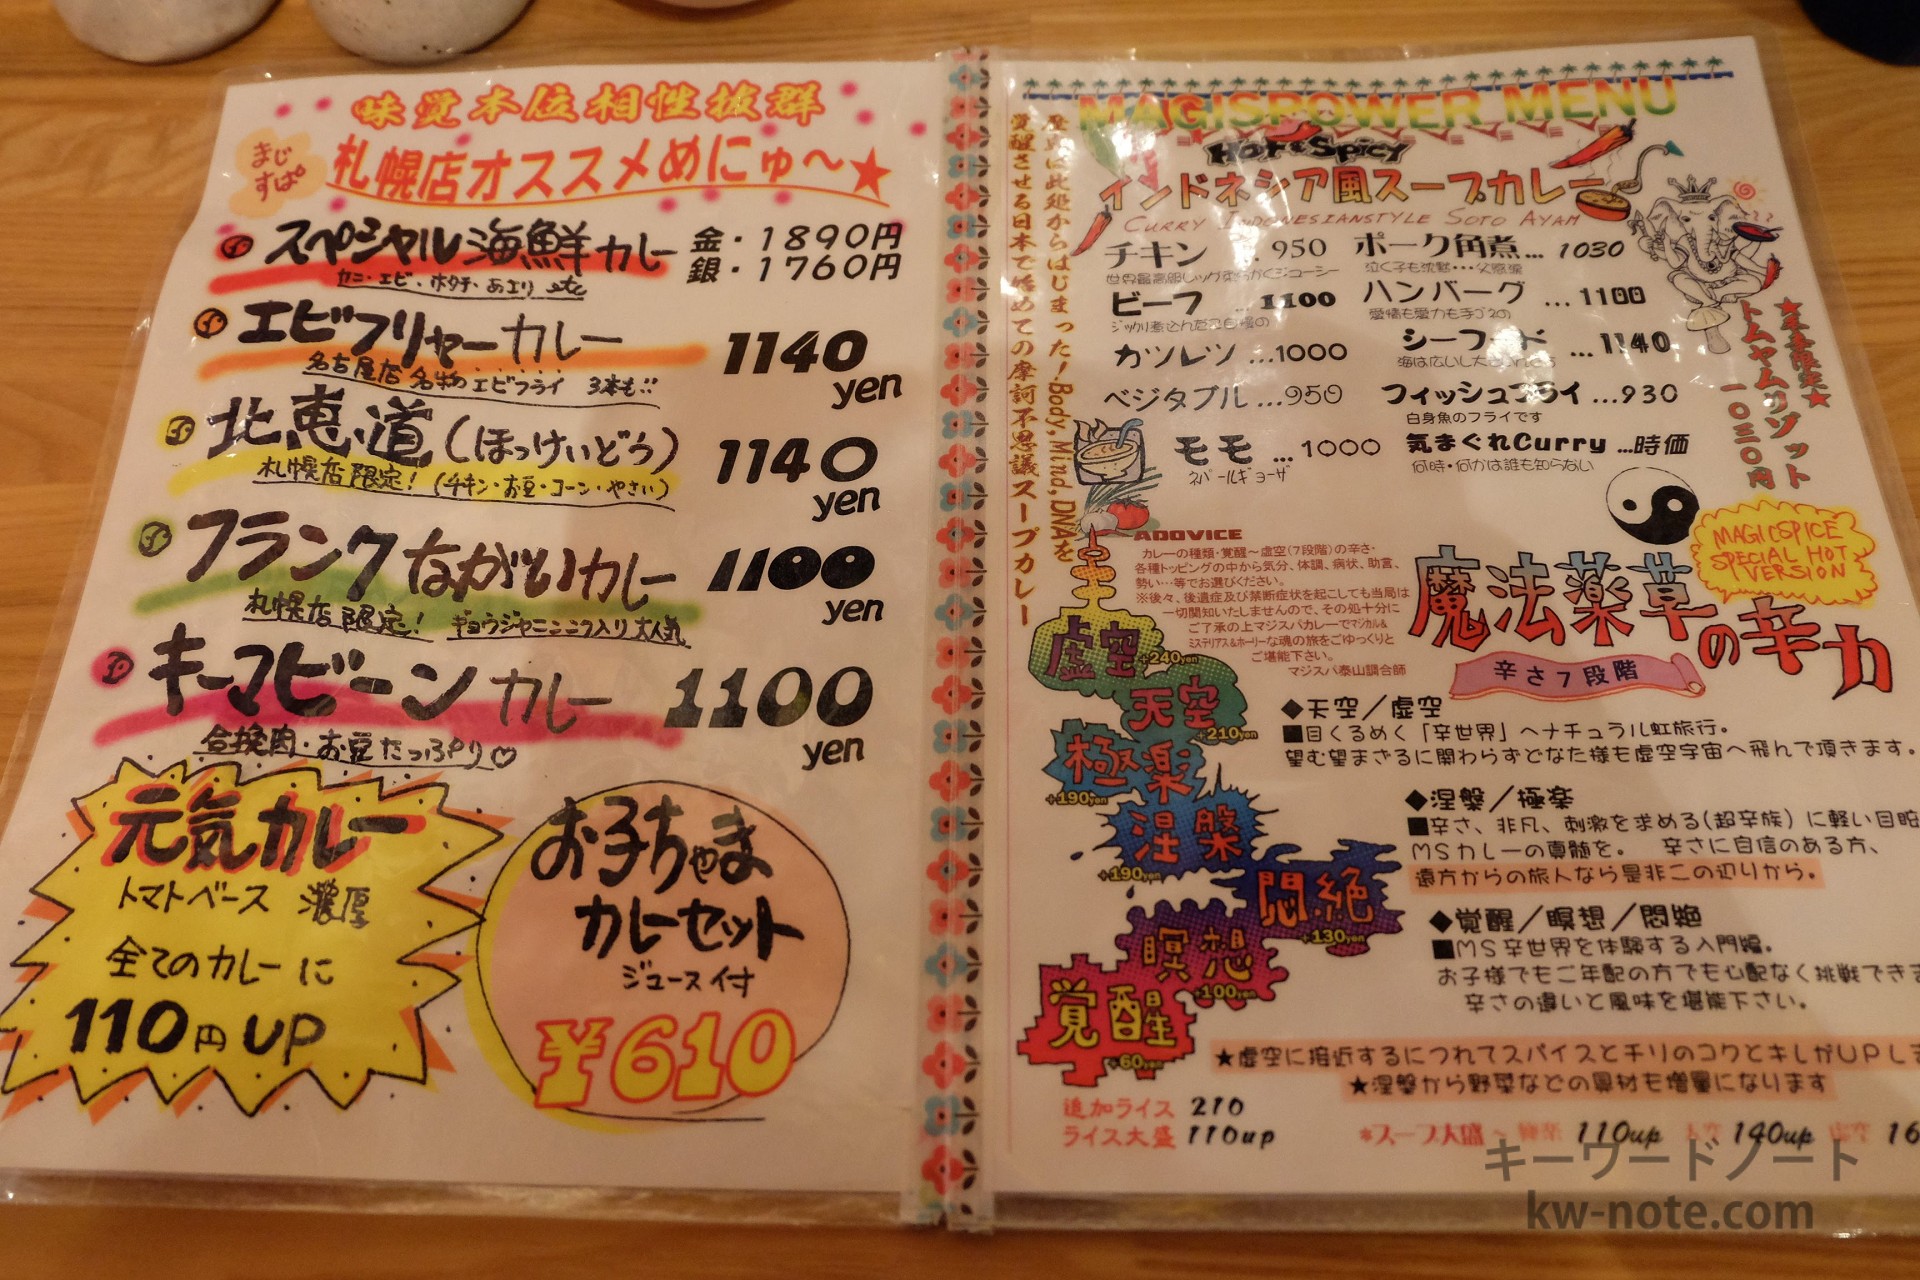 味覚本位相性抜群
まじすぱ
札幌店オススメめにゅ〜★
スペシャル海鮮カレー
金・1890円
銀・1760円
カニ・エビ・ホタチ・あさり etc
エビフリャーカレー
1140 yen
名古屋店 名物 エビフライ 3本も!!
北恵道(ほっけいどう)
1140 yen
札幌店限定!(チキン・お豆・コーン・やさい)
フランクながいカレー
1100 yen
札幌店限定! ギョウジャニンニク入り 大人気
キーマビーンカレー
1100 yen
合挽肉・お豆たっぷり♡
元気カレー
トマトベース 濃厚
全てのカレーに
110円UP
お子ちゃま
カレーセット
ジュース付
¥610
MAGISPOWER MENU
Hot & Spicy
インドネシア風スープカレー
CURRY INDONESIANSTYLE SOTO AYAM
歴史は此処からはじまった!Body, Mind, DNAを
覚醒させる日本で始めての摩訶不思議スープカレー
チキン 950
ポーク角煮... 1030
ビーフ ...1100
ハンバーグ ...1100
カツレツ ...1000
シーフード ...1140
ベジタブル ...950
フィッシュフライ ...930
白身魚のフライです
モモ ...1000
ネパールギョーザ
気まぐれCurry ...時価
何時・何かは誰も知らない
トムヤムリゾット
一〇三〇円
ADDVICE
カレーの種類・覚醒〜虚空(7段階)の辛さ・
各種トッピングの中から気分、体調、病状、助言、
勢い…等でお選びください。
※後々、後遺症及び禁断症状を起こしても当局は
一切関知いたしませんので、その処十分に
ご了承の上マジスパカレーでマジカル&
ミステリアス&ホーリーな魂の旅をごゆっくりと
ご堪能下さい。
マジスパ泰山調合師
MAGICSPICE
SPECIAL HOT
VERSION
魔法薬草の辛力
辛さ7段階
虚空 +240yen
天空 +210yen
極楽 +190yen
涅槃 +190yen
悶絶 +130yen
瞑想 +100yen
覚醒 +60yen
◆天空/虚空
■目くるめく「辛世界」へナチュラル虹旅行。
望む望まざるに関わらずどなた様も虚空宇宙へ飛んで頂きます。
◆涅槃/極楽
■辛さ、非凡、刺激を求める(超辛族)に軽い目眩
MSカレーの真髄を。 辛さに自信のある方、
遠方からの旅人なら是非この辺りから。
◆覚醒/瞑想/悶絶
■MS辛世界を体験する入門編。
お子様でもご年配の方でも心配なく挑戦できま
辛さの違いと風味を堪能下さい。
★虚空に接近するにつれてスパイスとチリのコクとキレがUPしま
★涅槃から野菜などの具材も増量になります
追加ライス 210
ライス大盛 110up
*スープ大盛 110up 140up 16
キーワードノート
kw-note.com